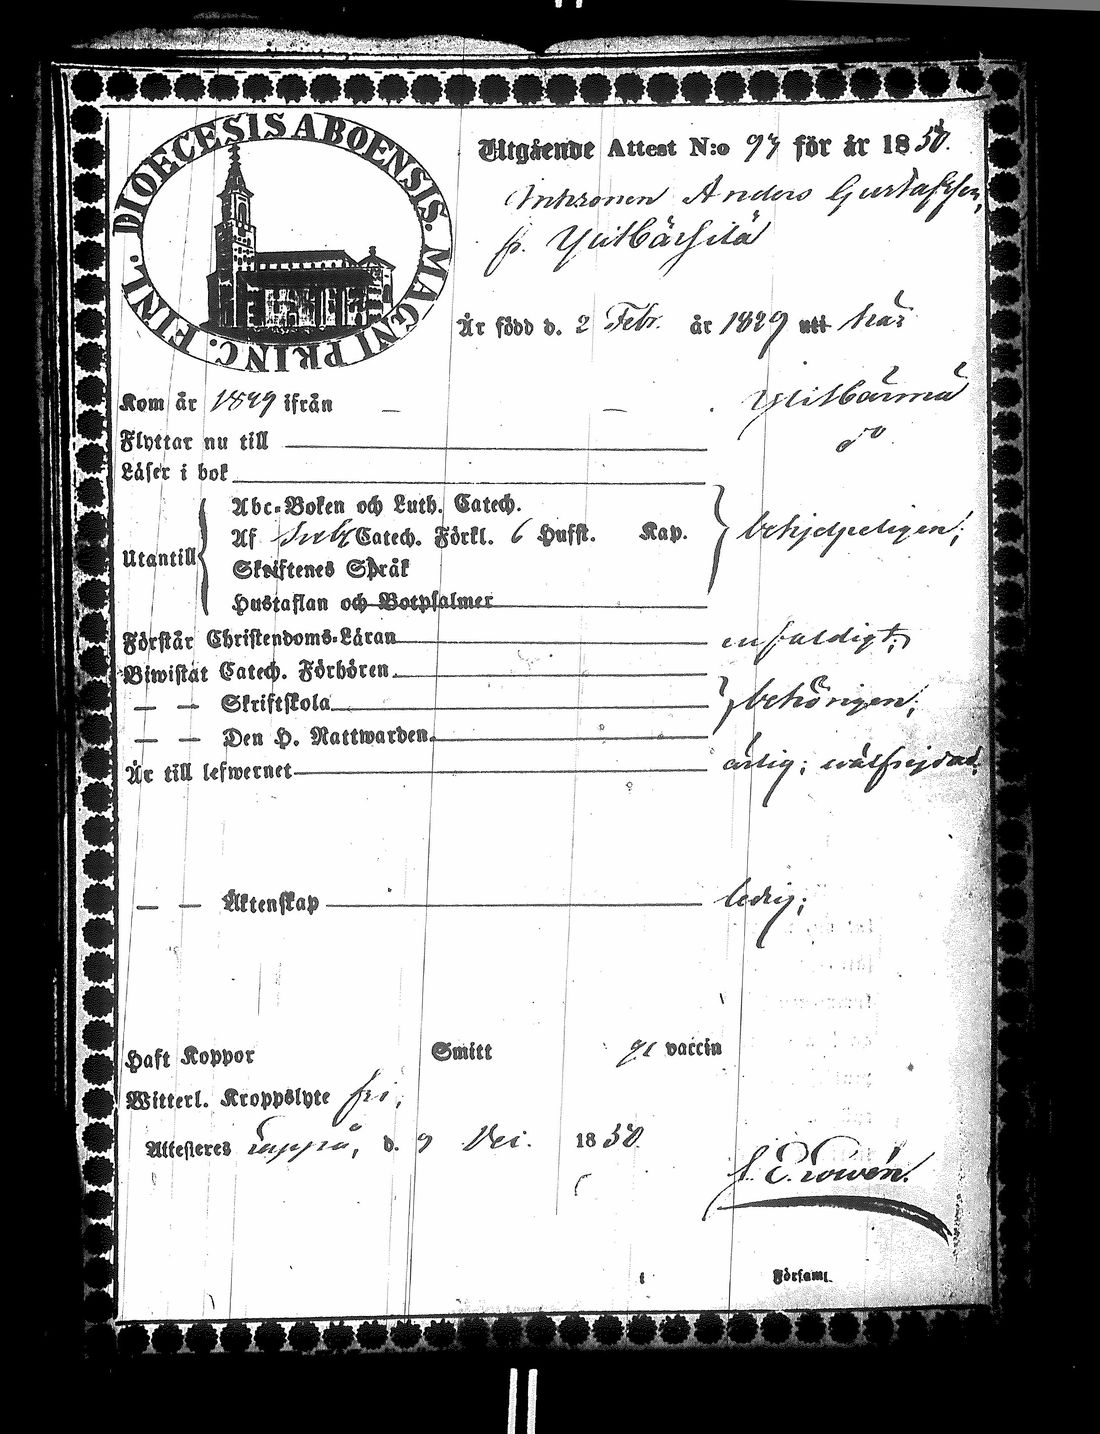 DIOECESIS ABOENSIS. MAGNI PRINC. FINL.
Utgående Attest N:o 97 för år 1850.
Anders Gustafsson,
fr.
Är född d. 2 Febr. år 1829 uti här
Kom år 1849 ifrån — — . Ylikärmä
Flyttar nu till do
Läser i bok
Utantill
Abc-Boken och Luth. Catech.
Af Sveb. Catech. Förkl. 6 Hufst. Kap. behjelpeligen;
Skriftenes Språk
Hustaflan och Botpsalmer
Förstår Christendoms-Läran enfaldigt;
Biwistat Catech. Förhören
— — Skriftskola behörigen;
— — Den H. Nattwarden
Är till lefwernet ärlig; wälfrejdad.
— — Äktenskap ledig;
Haft Koppor Smitt gt vaccin
Witterl. Kroppslyte fri;
Attesteres Lappo, d. 9 1850
Församl.